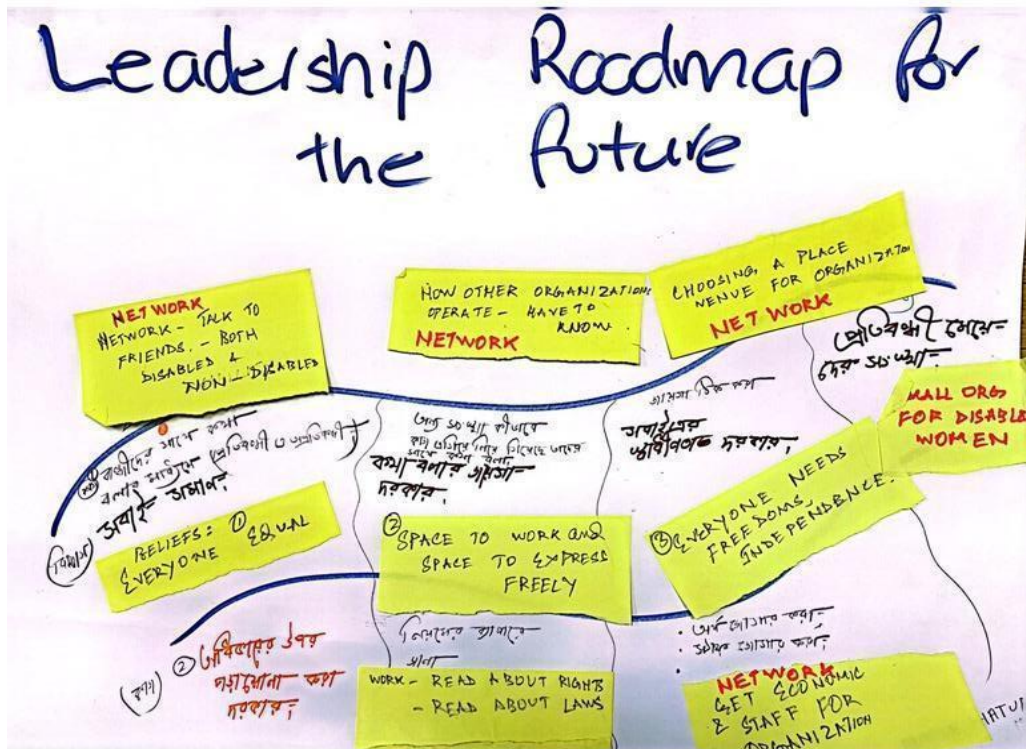 Leadership Roadmap for
the future
NETWORK
NETWORK - TALK TO
FRIENDS. - BOTH
DISABLED &
NON-DISABLED
HOW OTHER ORGANIZATIONS
OPERATE - HAVE TO
KNOW.
NETWORK
CHOOSING A PLACE
VENUE FOR ORGANIZATION
NETWORK
প্রতিবন্ধী মেয়ে-
দের সংস্থা-
MALL ORG
FOR DISABLE
WOMEN
① বান্ধবীদের সাথে কথা
বলার মাধ্যমে প্রতিবন্ধী ও অপ্রতিবন্ধী
সবাই সমান।
অন্য সংস্থা কীভাবে
সাথে কথা বলা
কথা বলার জায়গা
দরকার।
জায়গা ঠিক করা
সবাইর
স্বাধীনতা দরকার।
বিশ্বাস
BELIEFS: ①
EVERYONE EQUAL
② SPACE TO WORK and
SPACE TO EXPRESS
FREELY
③ EVERYONE NEEDS
FREEDOMS,
INDEPENDENCE.
② অধিকারের উপর
পড়াশোনা করা
দরকার।
কাজ
নিয়মের ব্যাপারে
জানা
WORK - READ ABOUT RIGHTS
- READ ABOUT LAWS
· অর্থ জোগার করা-
· জোগার করা।
NETWORK
GET ECONOMIC
& STAFF FOR
ORGANIZATION